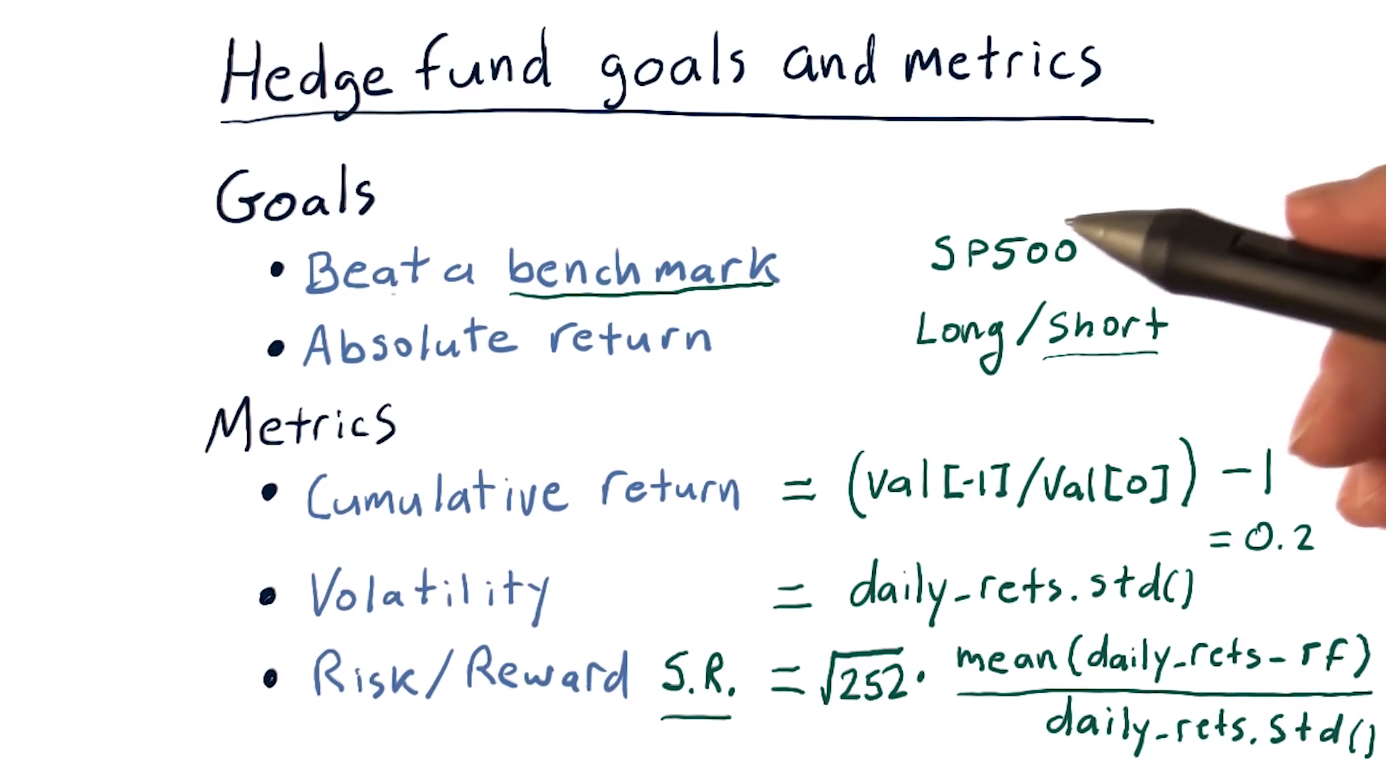 Hedge fund goals and metrics
Goals
• Beat a benchmark SP500
• Absolute return Long/short
Metrics
• Cumulative return = (val[-1]/val[0]) - 1
= 0.2
• Volatility = daily_rets.std()
• Risk/Reward S.R. = √252 · mean(daily_rets - rf)
daily_rets.std()